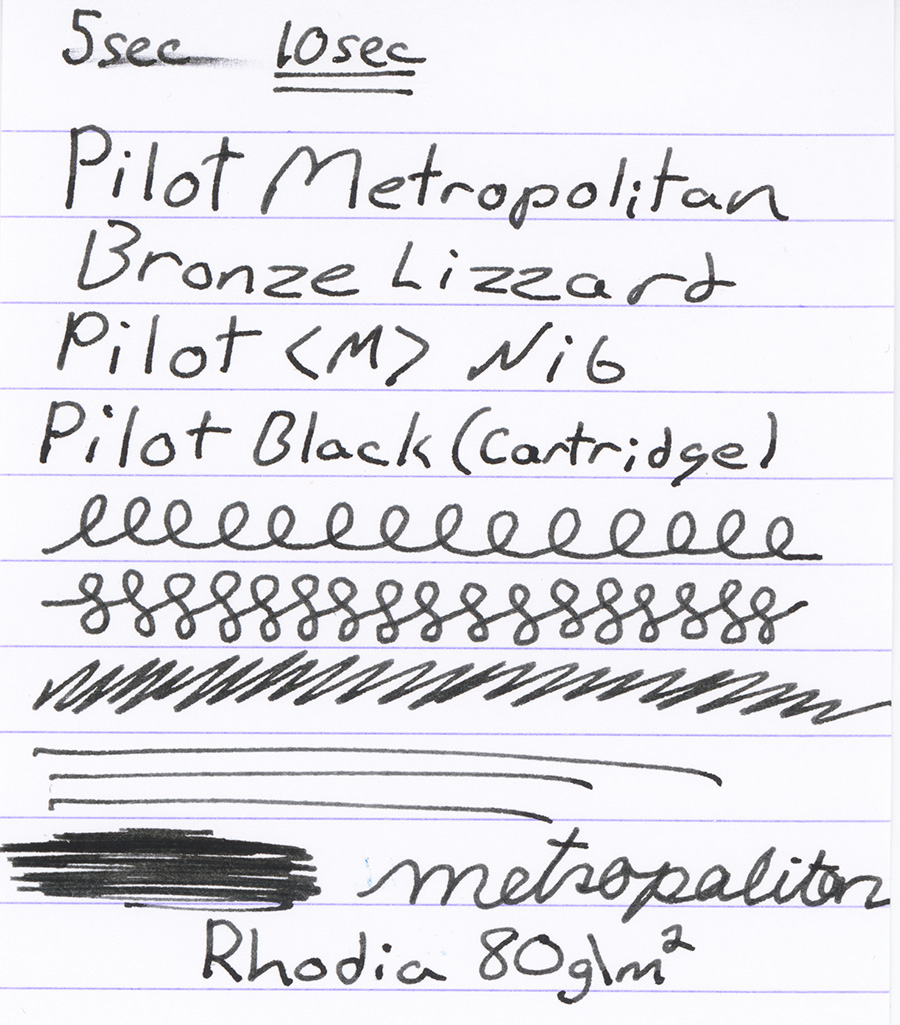 5sec 10sec
Pilot Metropolitan
Bronze Lizzard
Pilot <M> Nib
Pilot Black (Cartridge)
metropalitan
Rhodia 80g\m²